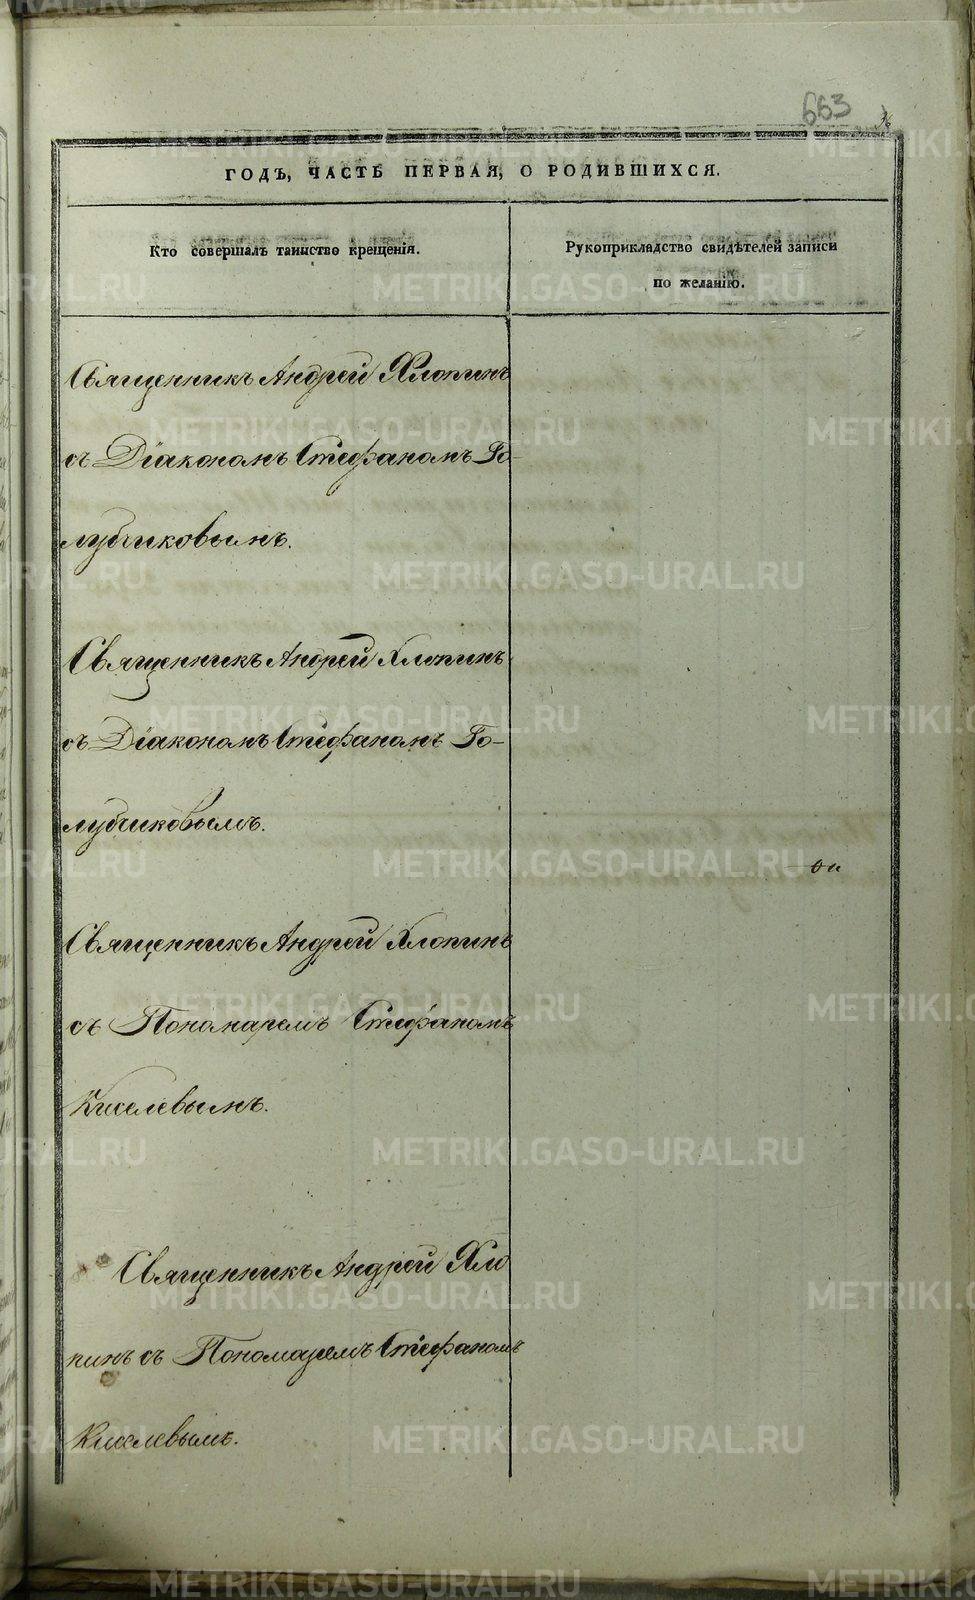 663
36
ГОДЪ, ЧАСТЬ ПЕРВАЯ, О РОДИВШИХСЯ.
Кто совершалъ таинство крещенія.
Рукоприкладство свидѣтелей записи
по желанію.
Священникъ Андрей Хлопинъ
съ Діакономъ Стефаномъ Го-
лубчиковымъ.
Священникъ Андрей Хлопинъ
съ Діакономъ Стефаномъ Го-
лубчиковымъ.
Священникъ Андрей Хлопинъ
съ Пономаремъ Стефаномъ
Киселевымъ.
Священникъ Андрей Хло
пинъ съ Пономаремъ Стефаномъ
Киселевымъ.
METRIKI.GASO-URAL.RU